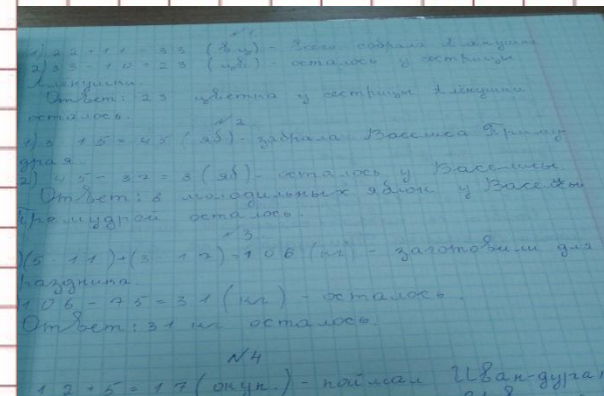 №1
1) 22 + 11 = 33 (в.ц) - Всего собрала Алёнушка
2) 33 - 10 = 23 (цв) - осталось у сестрицы
Алёнушки.
Ответ: 23 цветка у сестрицы Алёнушки
осталось.
№2
1) 3 · 15 = 45 (яб) - забрала Василиса Прему
драя.
2) 45 - 37 = 8 (яб) - осталось у Василисы
Ответ: 8 молодильных яблок у Василисы
Премудрой осталось.
№3
(5 · 11) + (3 · 17) = 106 (кг) - заготовили для
праздника.
106 - 75 = 31 (кг) - осталось.
Ответ: 31 кг осталось.
№4
12 + 5 = 17 (окун.) - поймал Иван-дурак